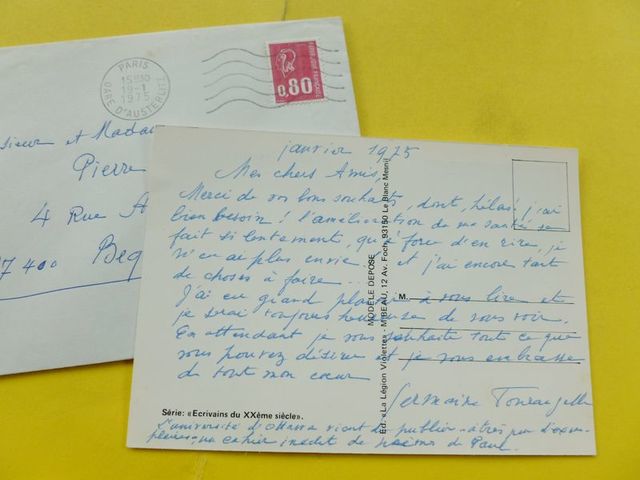 PARIS
15H30
19-1
1975
GARE D'AUSTERLITZ
0,80
Monsieur et Madame
Pierre
4 Rue A
37400
janvier 1975
Mes chers Amis,
Merci de vos bons souhaits, dont, hélas! j'ai
bien besoin! l'amélioration de ma santé se
fait si lentement, qu'à force d'en rire, je
n'en ai plus envie! et j'ai encore tant
de choses à faire...
J'ai eu grand plaisir à vous lire et
je serai toujours heureuse de vous voir.
En attendant je vous souhaite tout ce que
vous pouvez désirer et je vous embrasse
de tout mon coeur
Germaine
M.
MODÈLE DÉPOSÉ
Ed. «La Légion Violette» - MIBEAU, 12 Av. Foch, 93150 Le Blanc Mesnil
Série: «Ecrivains du XXéme siècle».
L'université d'Ottawa vient de publier - à très peu d'exem-
plaires, un cahier inédit de poèmes de Paul.